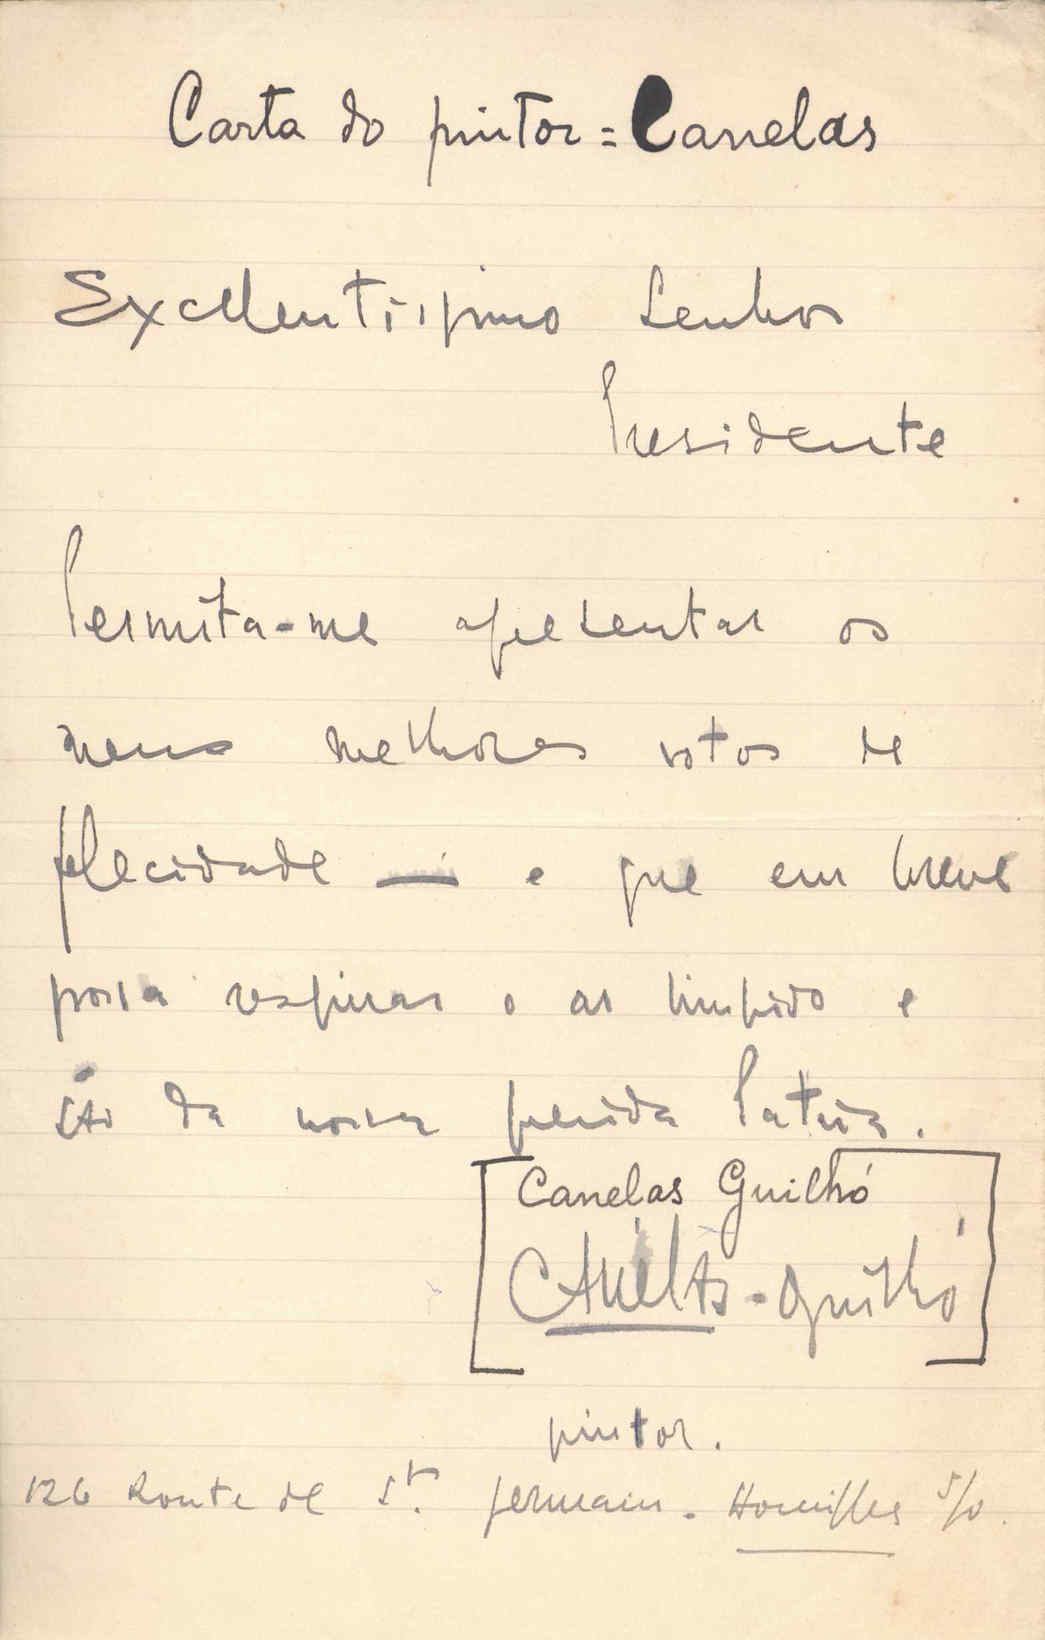 Carta do pintor = Canelas
Excellentissimo Senhor
Presidente
Permita-me apresentar os
meus melhores votos de
felecidade — e que em breve
possa respirar o ar limpido e
são da nossa querida Patria.
Canelas Guilhó
Canelas-Guilhó
pintor.
126 Route de St. Germain. Houilles S/O.